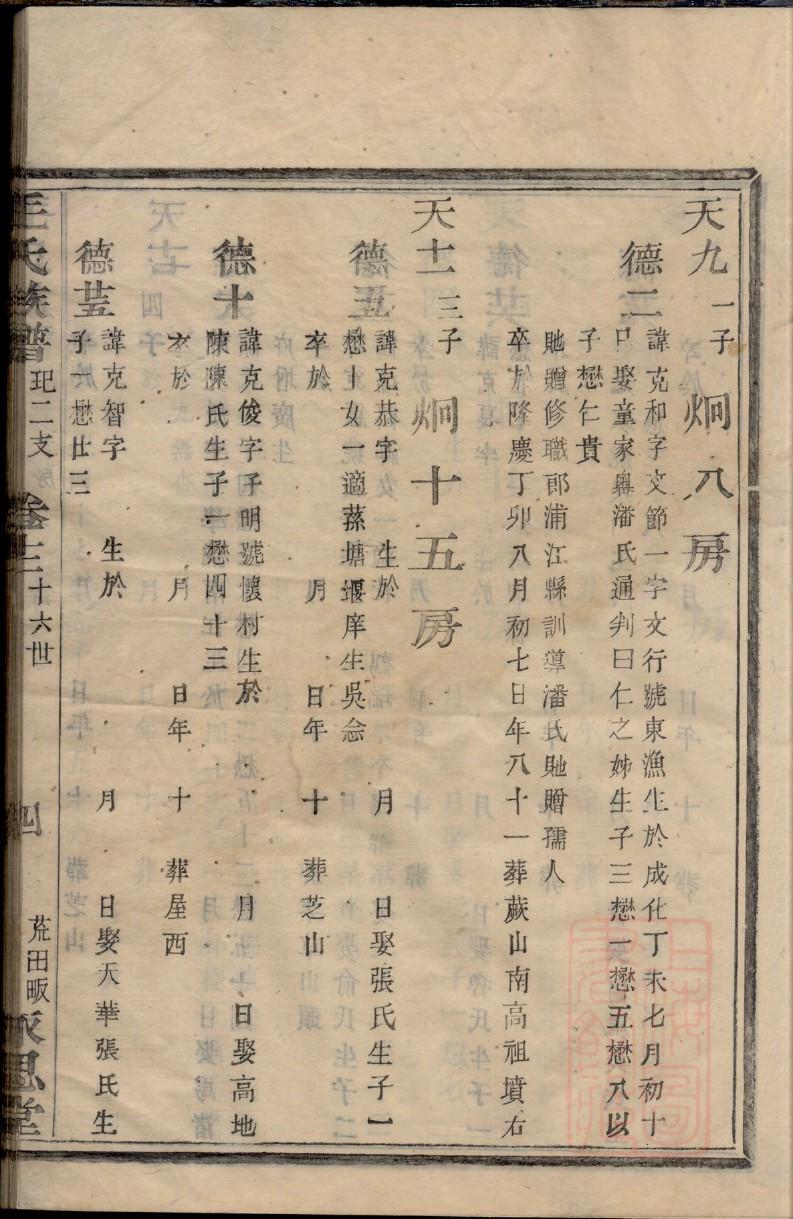 天九 一子 炯八房
德二 諱克和字文節一字文行號東漁生於成化丁未七月初十
日娶童家嶴潘氏通判曰仁之姊生子三懋一懋五懋八以
子懋仁貴
貤贈修職郎浦江縣訓導潘氏貤贈孺人
卒於隆慶丁卯八月初七日年八十一葬蕨山南高祖墳右
天十一 三子 炯十五房
德五 諱克恭字 生於 月 日娶張氏生子一
懋十女一適蓀塘堰庠生吳㤙
卒於 月 日年 十 葬芝山
德十 諱克俊字子明號懷村生於 月 日娶高地
陳陳氏生子一懋四十三
卒於 月 日年 十 葬屋西
德十五 諱克智字 生於 月 日娶天華張氏生
子一懋廿三
王氏族譜 玘二支 卷十三 十六世 四 荒田畈 永思堂